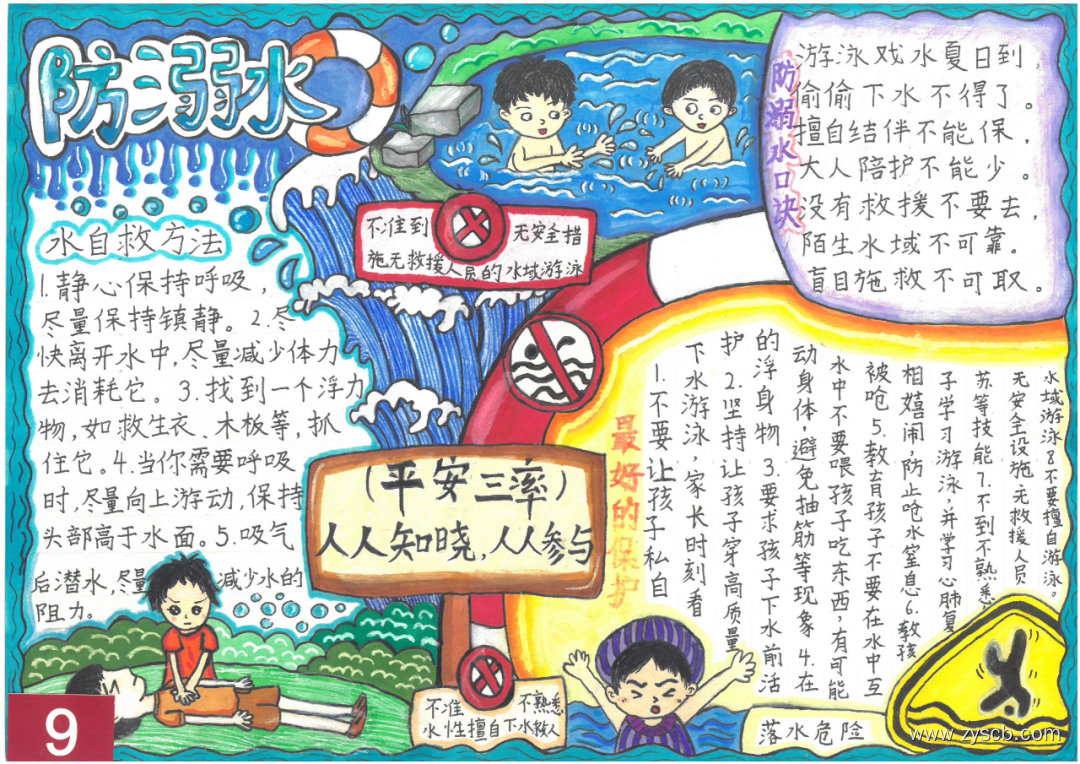 防溺水
水自救方法
1.静心保持呼吸，
尽量保持镇静。2.尽
快离开水中，尽量减少体力
去消耗它。3.找到一个浮力
物，如救生衣、木板等，抓
住它。4.当你需要呼吸
时，尽量向上游动，保持
头部高于水面。5.吸气
后潜水，尽量减少水的
阻力。
不准到无安全措
施无救援人员的水域游泳
防溺水口诀
游泳戏水夏日到，
偷偷下水不得了。
擅自结伴不能保，
大人陪护不能少。
没有救援不要去，
陌生水域不可靠。
盲目施救不可取。
（平安三率）
人人知晓，人人参与
最好的保护
1.不要让孩子私自
下水游泳，家长时刻看
护2.坚持让孩子穿高质量
的浮身物3.要求孩子下水前活
动身体，避免抽筋等现象4.在
水中不要喂孩子吃东西，有可能
被呛5.教育孩子不要在水中互
相嬉闹，防止呛水窒息6.教孩
子学习游泳，并学习心肺复
苏等技能7.不到不熟悉、
无安全设施、无救援人员
水域游泳8不要擅自游泳。
不准不熟悉
水性擅自下水救人
落水危险
9
www.zyscb.com